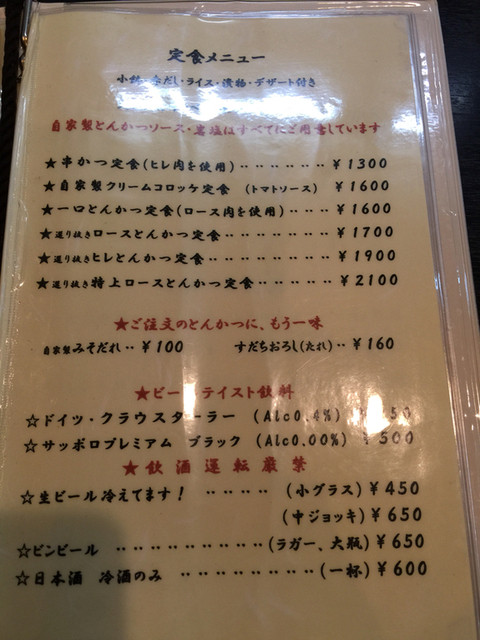 定食メニュー
小鉢・赤だし・ライス・漬物・デザート付き
自家製とんかつソース・岩塩はすべてにご用意しています
★串かつ定食(ヒレ肉を使用)‥‥‥‥‥‥ ¥1300
★自家製クリームコロッケ定食 (トマトソース) ¥1600
★一口とんかつ定食(ロース肉を使用)‥‥ ¥1600
★選り抜きロースとんかつ定食‥‥‥‥‥‥ ¥1700
★選り抜きヒレとんかつ定食‥‥‥‥‥‥‥ ¥1900
★選り抜き特上ロースとんかつ定食‥‥‥‥ ¥2100
★ご注文のとんかつに、もう一味
自家製みそだれ‥ ¥100 すだちおろし(たれ)‥ ¥160
★ビールテイスト飲料
☆ドイツ・クラウスターラー (Alc0.4%) ¥50
☆サッポロプレミアム ブラック (Alc0.00%) ¥500
★飲酒運転厳禁
☆生ビール冷えてます! ‥‥‥‥ (小グラス) ¥450
(中ジョッキ) ¥650
☆ビンビール ‥‥‥‥‥‥‥‥‥(ラガー、大瓶) ¥650
☆日本酒 冷酒のみ ‥‥‥‥‥‥‥‥(一杯) ¥600